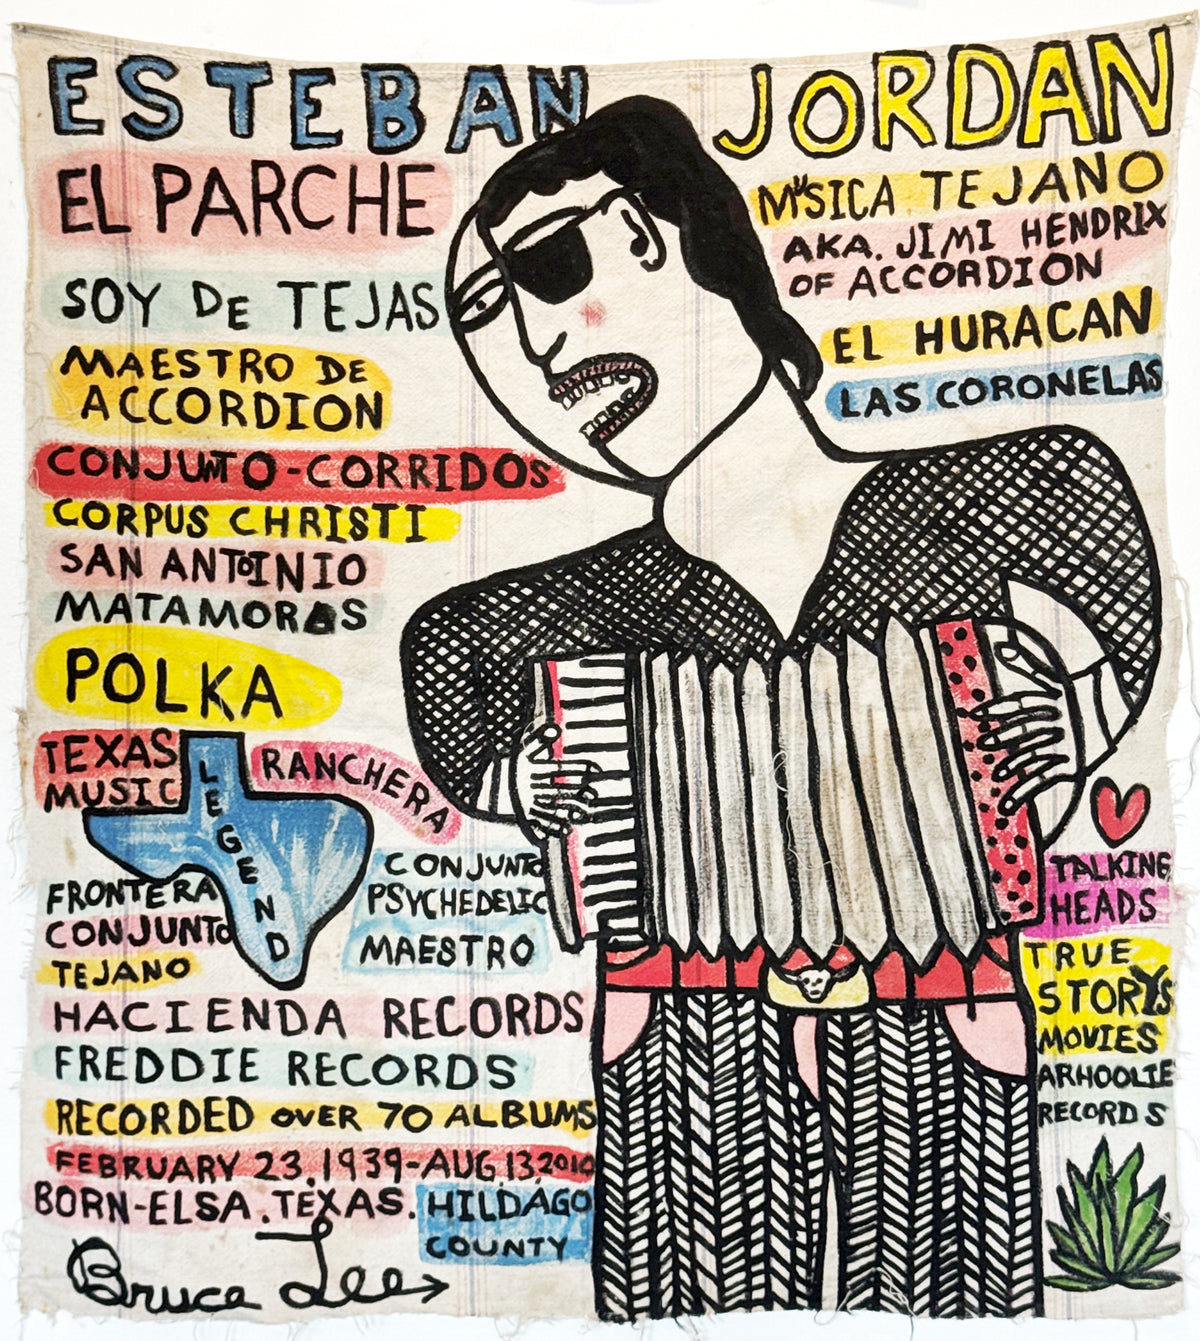 ESTEBAN JORDAN
EL PARCHE
SOY DE TEJAS
MAESTRO DE
ACCORDION
CONJUNTO-CORRIDOS
CORPUS CHRISTI
SAN ANTOINIO
MATAMORAS
POLKA
TEXAS
MUSIC
LEGEND
RANCHERA
FRONTERA
CONJUNTO
TEJANO
CONJUNTO
PSYCHEDELIC
MAESTRO
HACIENDA RECORDS
FREDDIE RECORDS
RECORDED OVER 70 ALBUMS
FEBRUARY 23, 1939-AUG.13,2010
BORN-ELSA.TEXAS. HILDAGO
COUNTY
Bruce Lee
MUSICA TEJANO
AKA. JIMI HENDRIX
OF ACCORDION
EL HURACAN
LAS CORONELAS
TALKING
HEADS
TRUE
STORYS
MOVIES
ARHOOLIE
RECORDS